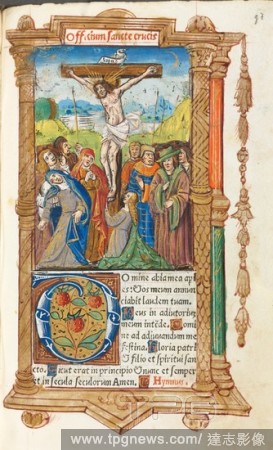 Officium sancte crucis
Domine labia mea ape
ries: Et os meum annun
ciabit laudem tuam.
Deus in adiutorium
meum intēde. Domi
ne ad adiuvandum me
festina. Gloria patri
& filio et spiritui san
cto. Sicut erat in principio & nunc et semper
et in secula seculorum Amen. Hymnus.
www.tpgnews.com / 達志影像